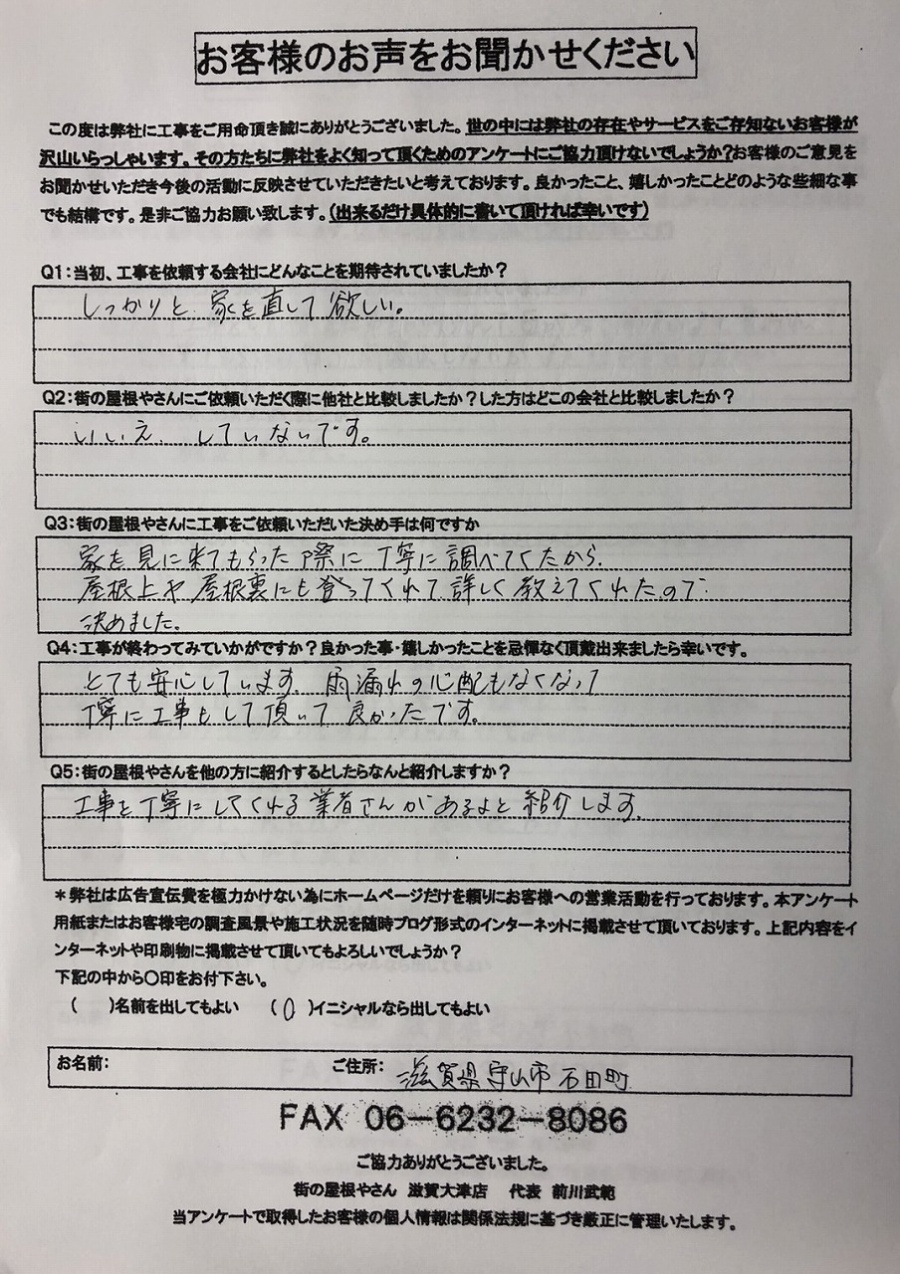 お客様のお声をお聞かせください
この度は弊社に工事をご用命頂き誠にありがとうございました。世の中には弊社の存在やサービスをご存知ないお客様が
沢山いらっしゃいます。その方たちに弊社をよく知って頂くためのアンケートにご協力頂けないでしょうか?お客様のご意見を
お聞かせいただき今後の活動に反映させていただきたいと考えております。良かったこと、嬉しかったことどのような些細な事
でも結構です。是非ご協力お願い致します。(出来るだけ具体的に書いて頂ければ幸いです)
Q1:当初、工事を依頼する会社にどんなことを期待されていましたか?
しっかりと家を直して欲しい。
Q2:街の屋根やさんにご依頼いただく際に他社と比較しましたか?した方はどこの会社と比較しましたか?
いいえ、していないです。
Q3:街の屋根やさんに工事をご依頼いただいた決め手は何ですか
家を見に来てもらった際に丁寧に調べてくたから、
屋根上や屋根裏にも登ってくれて詳しく教えてくれたので
決めました。
Q4:工事が終わってみていかがですか?良かった事・嬉しかったことを忌憚なく頂戴出来ましたら幸いです。
とても安心しています。雨漏れの心配もなくなって
丁寧に工事もして頂いて良かったです。
Q5:街の屋根やさんを他の方に紹介するとしたらなんと紹介しますか?
工事を丁寧にしてくれる業者さんがあるよと紹介します。
*弊社は広告宣伝費を極力かけない為にホームページだけを頼りにお客様への営業活動を行っております。本アンケート
用紙またはお客様宅の調査風景や施工状況を随時ブログ形式のインターネットに掲載させて頂いております。上記内容をイ
ンターネットや印刷物に掲載させて頂いてもよろしいでしょうか?
下記の中から〇印をお付下さい。
( )名前を出してもよい (〇)イニシャルなら出してもよい
お名前: ご住所: 滋賀県守山市石田町
FAX 06-6232-8086
ご協力ありがとうございました。
街の屋根やさん 滋賀大津店 代表 前川武範
当アンケートで取得したお客様の個人情報は関係法規に基づき厳正に管理いたします。